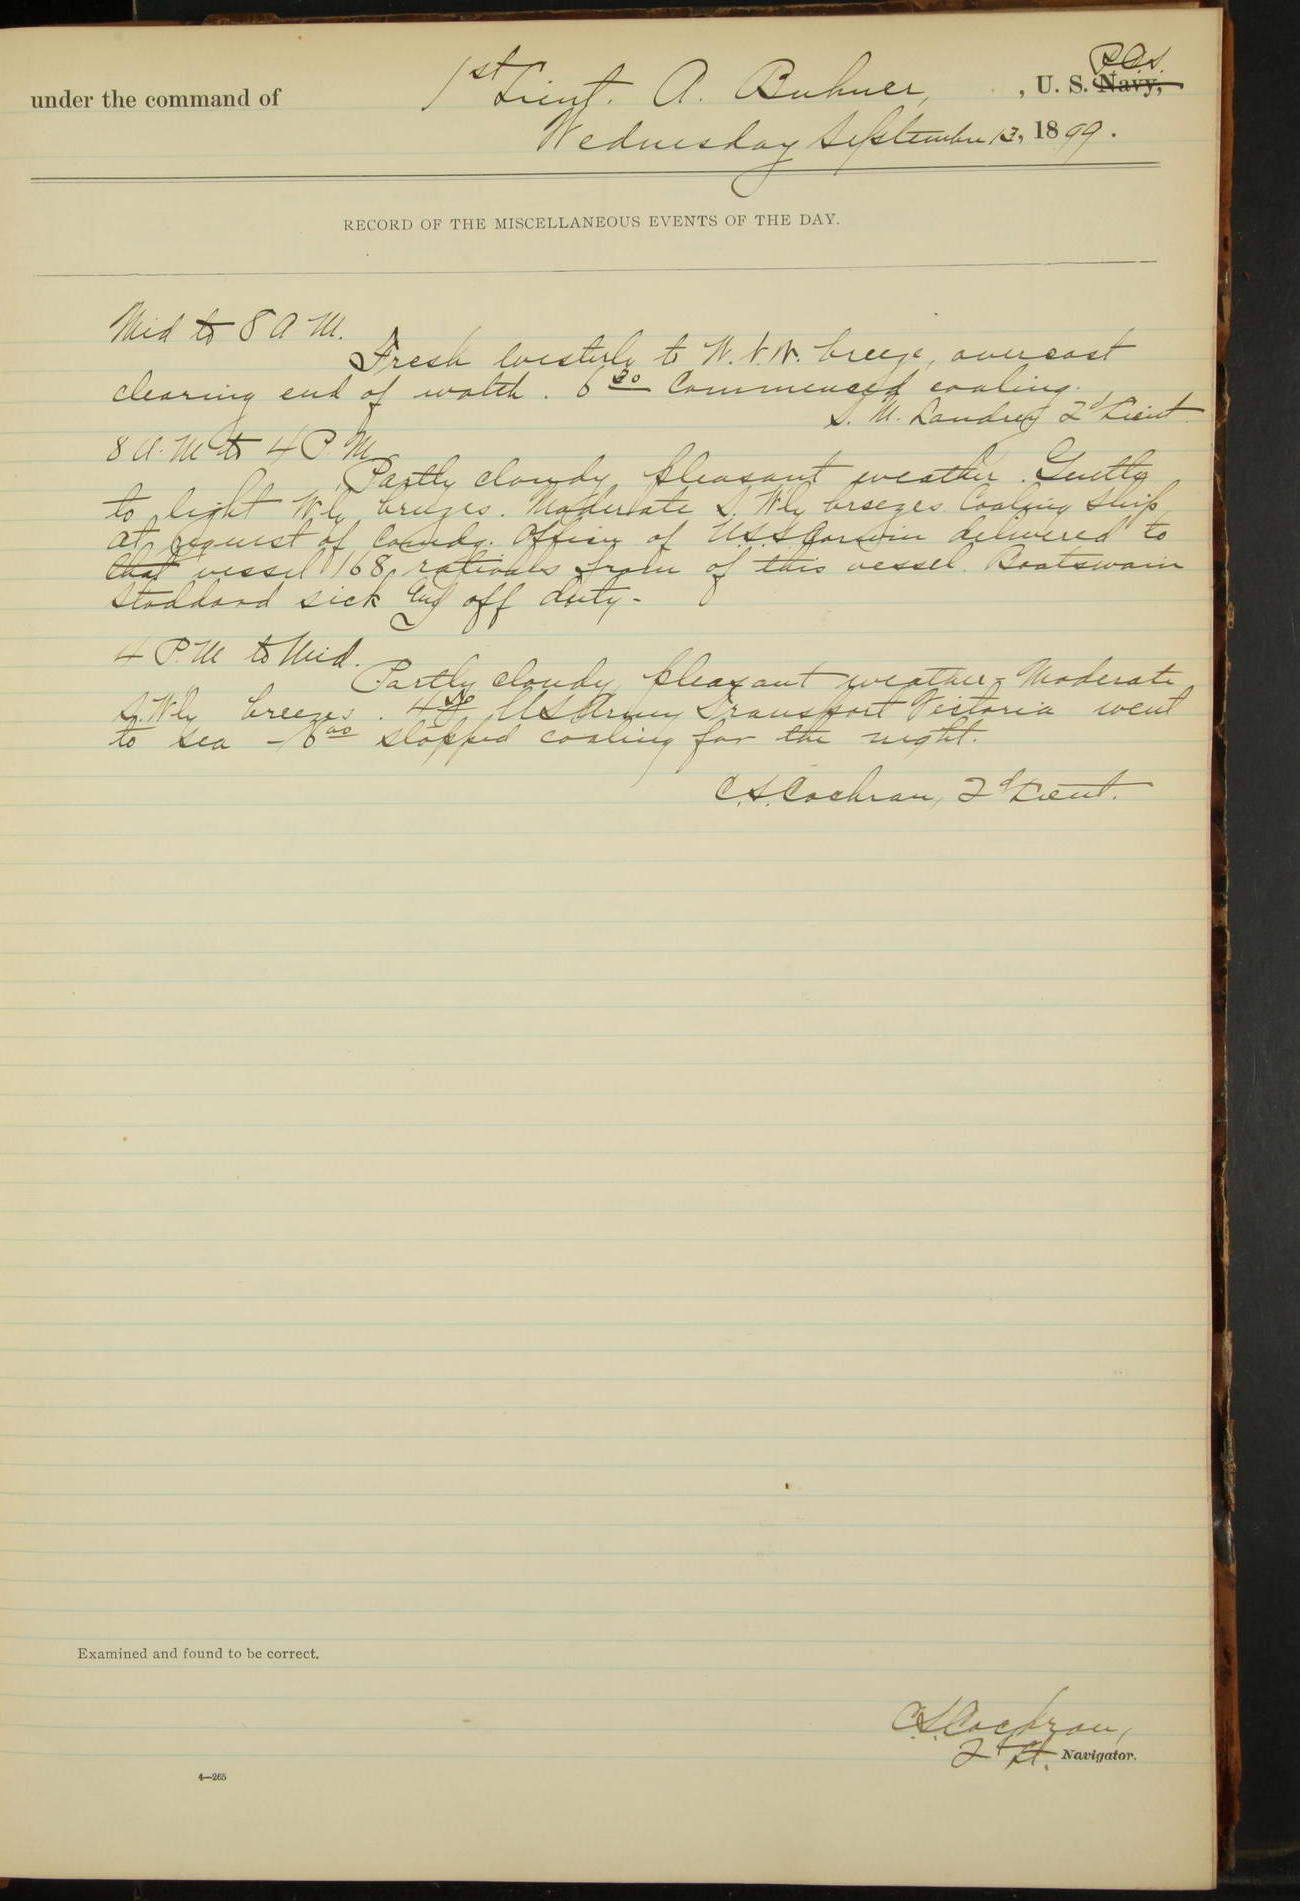 under the command of 1st Lieut. A. Buhner, , U. S. Navy,
Wednesday September 13, 1899.
RECORD OF THE MISCELLANEOUS EVENTS OF THE DAY.
Mid to 8 A M.
Fresh westerly to W. breeze, overcast
clearing end of watch. 6 30 Commenced coaling.
S. M. Landrey 2d Lieut.
8 A. M to 4 P. M.
Partly cloudy pleasant weather. Gentle
to light W'ly breezes. Moderate S. W'ly breezes. Coaling ship
At request of Comdg. Officer of U.S.S. Corwin delivered to
that vessel 168 rations from of this vessel. Boatswain
Stoddard sick and off duty -
4 P. M to Mid.
Partly cloudy, pleasant weather - Moderate
S. W'ly breezes. U S Army Transport Victoria went
to sea - 6 00 stopped coaling for the night.
C. S. Cochran, 2d Lieut.
Examined and found to be correct.
C. S. Cochran,
2d Lt. Navigator.
4—265